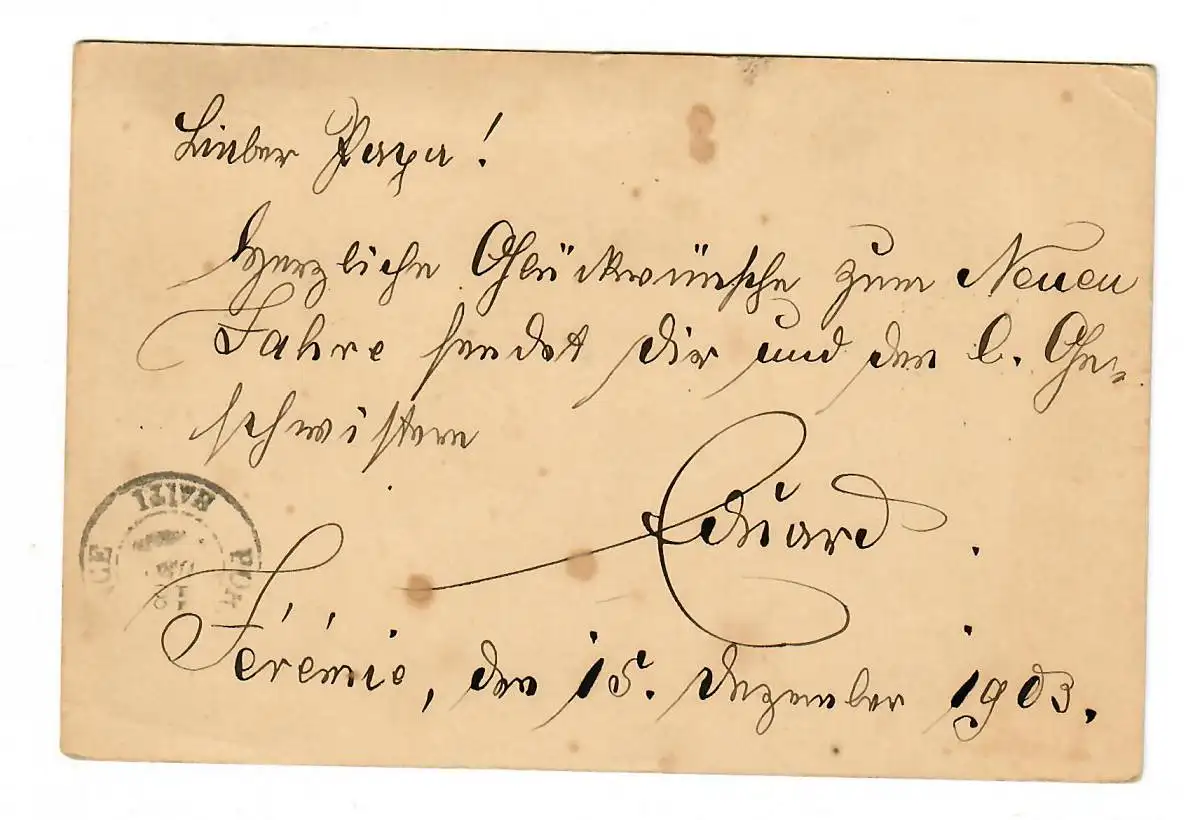 Lieber Papa!
Herzliche Glückwünsche zum Neuen
Jahre sendet dir und den l. Ge-
schwistern
Eduard.
HAITI
POR
CE
Jérémie, den 15. Dezember 1903.